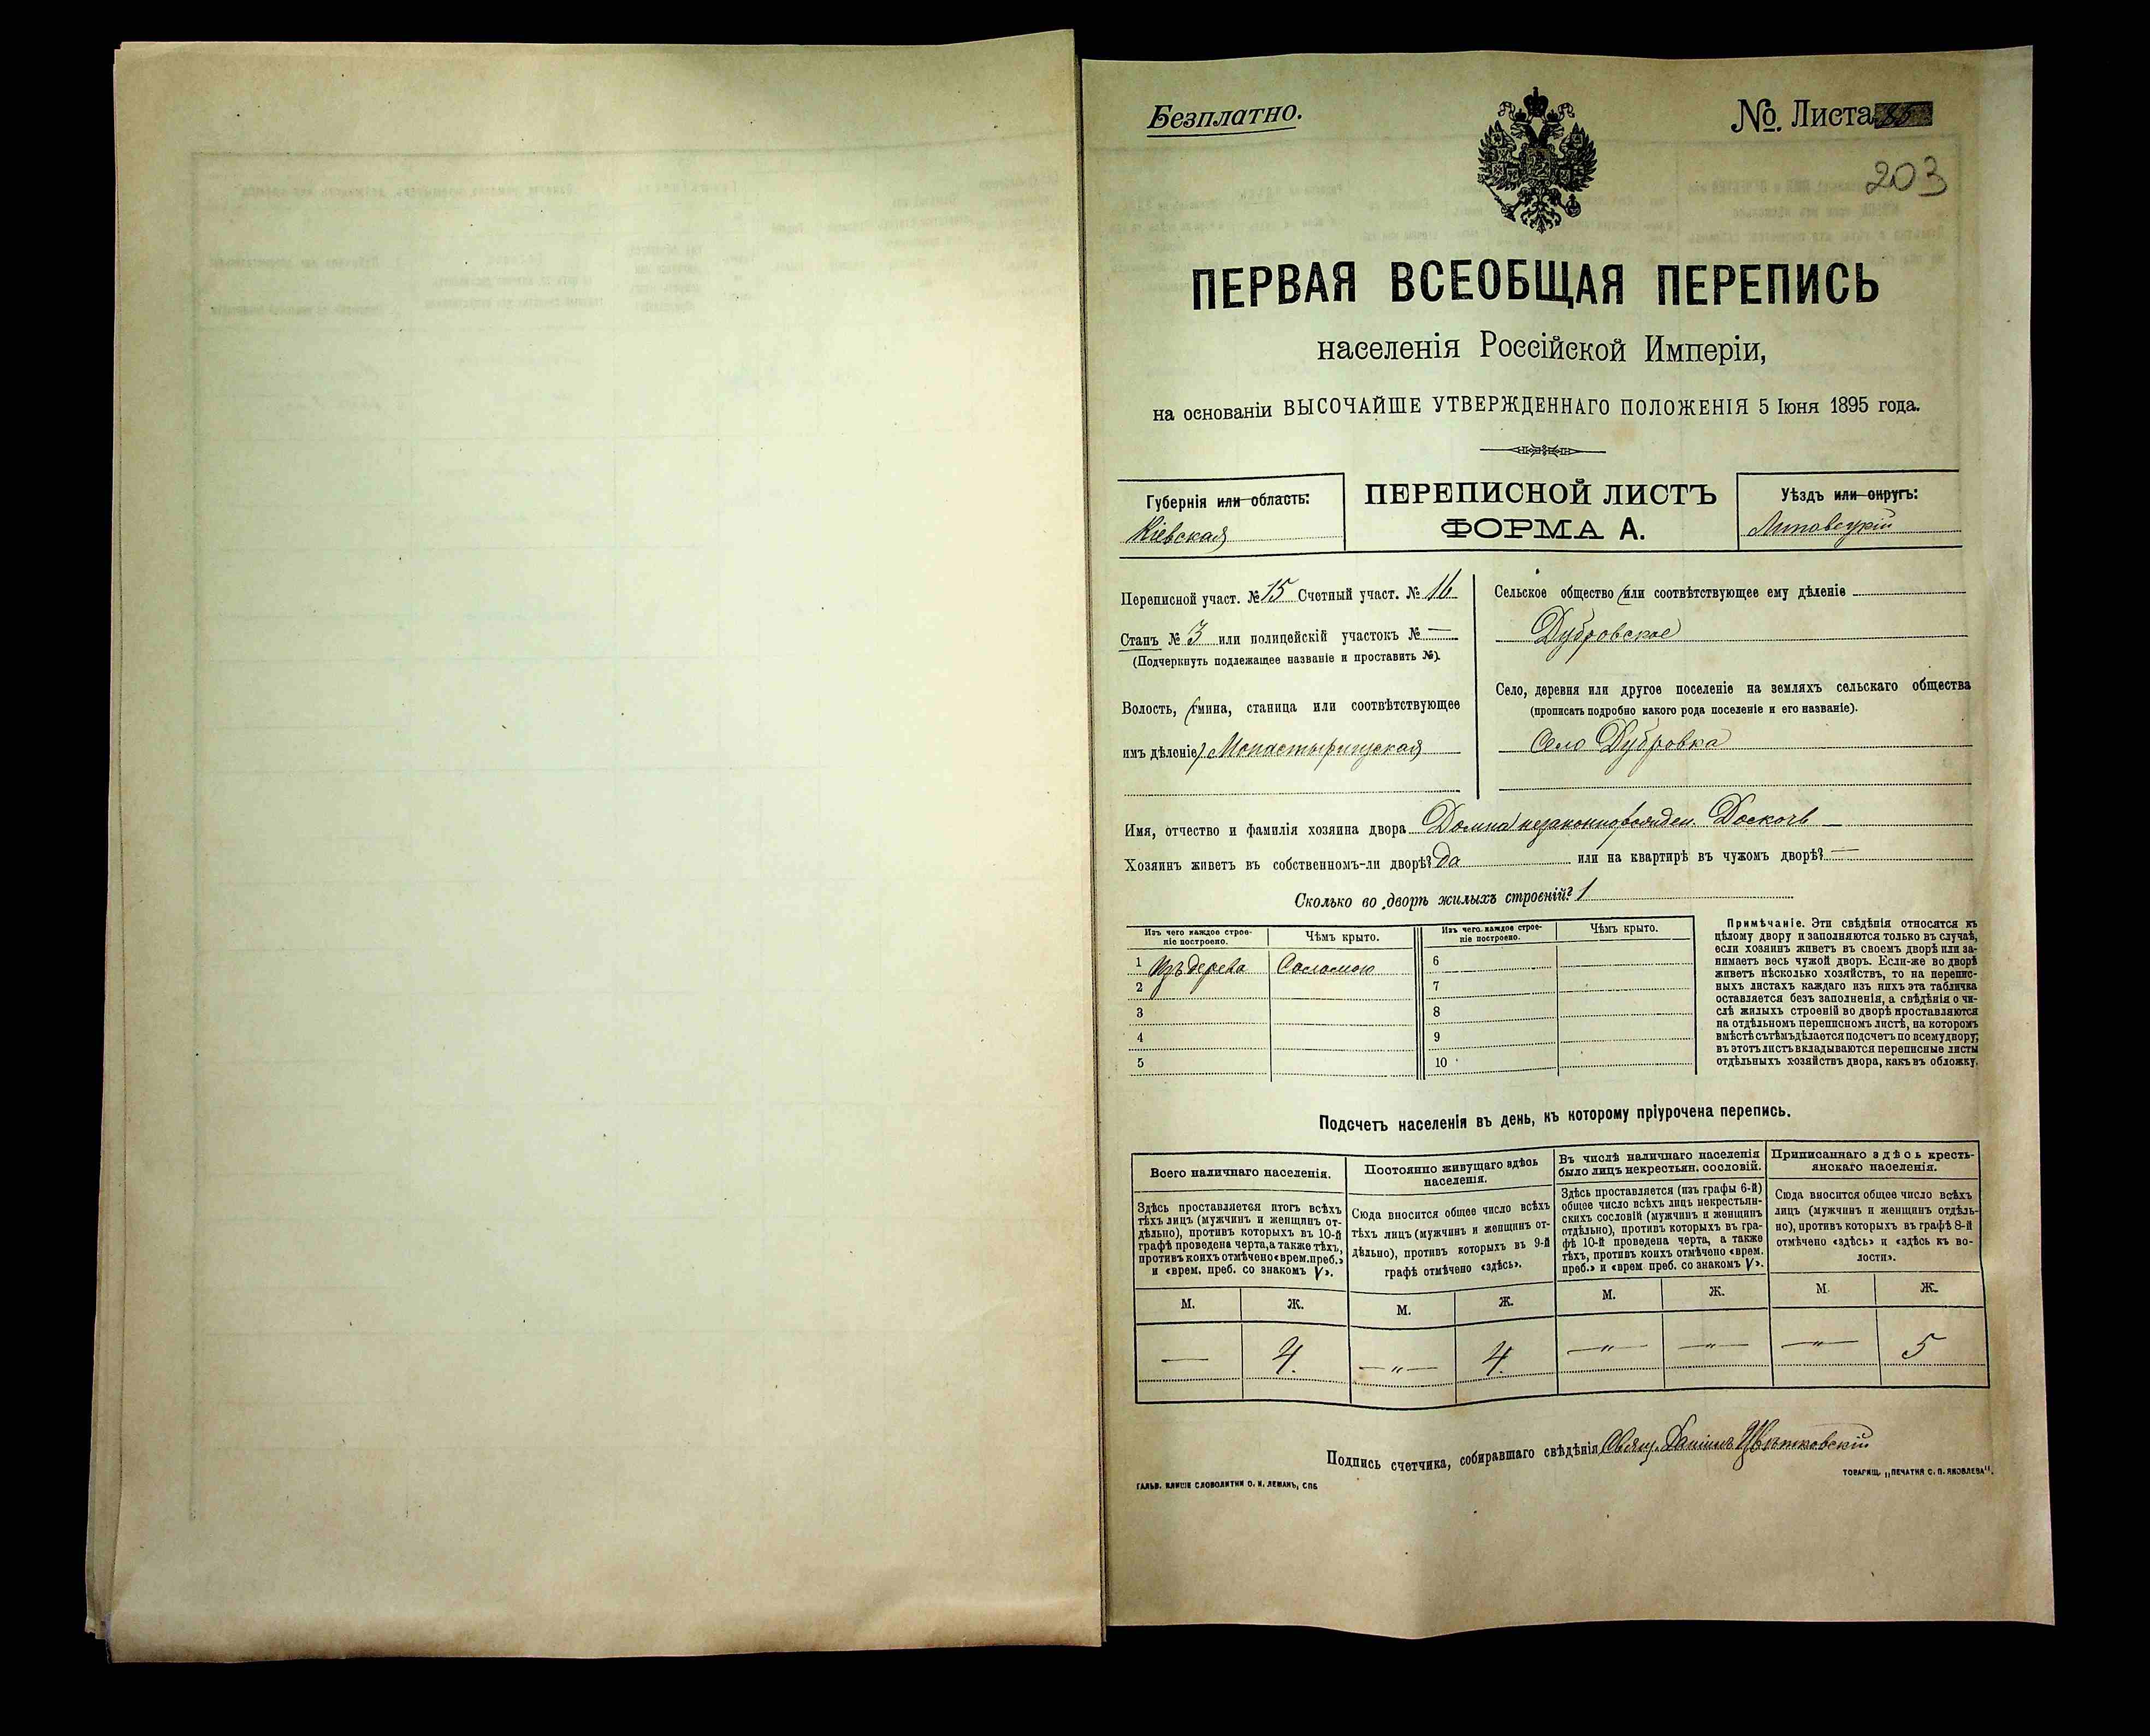 Безплатно.
№ Листа 85
203
ПЕРВАЯ ВСЕОБЩАЯ ПЕРЕПИСЬ
населенія Россійской Имперіи,
на основаніи ВЫСОЧАЙШЕ УТВЕРЖДЕННАГО ПОЛОЖЕНІЯ 5 Іюня 1895 года.
Губернія или область:
Кіевская
ПЕРЕПИСНОЙ ЛИСТЪ
ФОРМА А.
Уѣздъ или округъ:
Липовецкій
Переписной участ. № 15 Счетный участ. № 16
Станъ № 3 или полицейскій участокъ № —
(Подчеркнуть подлежащее названіе и проставить №).
Волость, (гмина, станица или соотвѣтствующее
имъ дѣленіе) Монастырищская
Сельское общество (или соотвѣтствующее ему дѣленіе
Дубровское
Село, деревня или другое поселеніе на земляхъ сельскаго общества
(прописать подробно какого рода поселеніе и его названіе).
Село Дубровка
Имя, отчество и фамилія хозяина двора Домна незаконнорожден. Доскочъ —
Хозяинъ живетъ въ собственномъ-ли дворѣ? да или на квартирѣ въ чужомъ дворѣ? —
Сколько во дворѣ жилыхъ строеній? 1
Изъ чего каждое строе-
ніе построено.
Чѣмъ крыто.
Изъ чего каждое строе-
ніе построено.
Чѣмъ крыто.
1 Изъ дерева Соломою 6
2 7
3 8
4 9
5 10
Примѣчаніе. Эти свѣдѣнія относятся къ
цѣлому двору и заполняются только въ случаѣ,
если хозяинъ живетъ въ своемъ дворѣ или за-
нимаетъ весь чужой дворъ. Если-же во дворѣ
живетъ нѣсколько хозяйствъ, то на перепис-
ныхъ листахъ каждаго изъ нихъ эта табличка
оставляется безъ заполненія, а свѣдѣнія о чи-
слѣ жилыхъ строеній во дворѣ проставляются
на отдѣльномъ переписномъ листѣ, на которомъ
вмѣстѣ съ тѣмъ дѣлается подсчетъ по всему двору;
въ этотъ листъ вкладываются переписные листы
отдѣльныхъ хозяйствъ двора, какъ въ обложку.
Подсчетъ населенія въ день, къ которому пріурочена перепись.
Всего наличнаго населенія.
Здѣсь проставляется итогъ всѣхъ
тѣхъ лицъ (мужчинъ и женщинъ от-
дѣльно), противъ которыхъ въ 10-й
графѣ проведена черта, а также тѣхъ,
противъ коихъ отмѣчено «врем. преб.»
и «врем. преб. со знакомъ V».
Постоянно живущаго здѣсь
населенія.
Сюда вносится общее число всѣхъ
тѣхъ лицъ (мужчинъ и женщинъ от-
дѣльно), противъ которыхъ въ 9-й
графѣ отмѣчено «здѣсь».
Въ числѣ наличнаго населенія
было лицъ некрестьян. сословій.
Здѣсь проставляется (изъ графы 6-й)
общее число всѣхъ лицъ некрестьян-
скихъ сословій (мужчинъ и женщинъ
отдѣльно), противъ которыхъ въ гра-
фѣ 10-й проведена черта, а также
тѣхъ, противъ коихъ отмѣчено «врем.
преб.» и «врем преб. со знакомъ V».
Приписаннаго здѣсь кресть-
янскаго населенія.
Сюда вносится общее число всѣхъ
лицъ (мужчинъ и женщинъ отдѣль-
но), противъ которыхъ въ графѣ 8-й
отмѣчено «здѣсь» и «здѣсь къ во-
лости».
М. Ж. М. Ж. М. Ж. М. Ж.
— 4. —"— 4. —"— —"— —"— 5
Подпись счетчика, собиравшаго свѣдѣнія Свящ. Даніилъ Цвѣтковскій
ГАЛЬВ. КЛИШЕ СЛОВОЛИТНИ О. И. ЛЕМАНЪ, СПБ
ТОВАРИЩ. „ПЕЧАТНЯ С. П. ЯКОВЛЕВА".